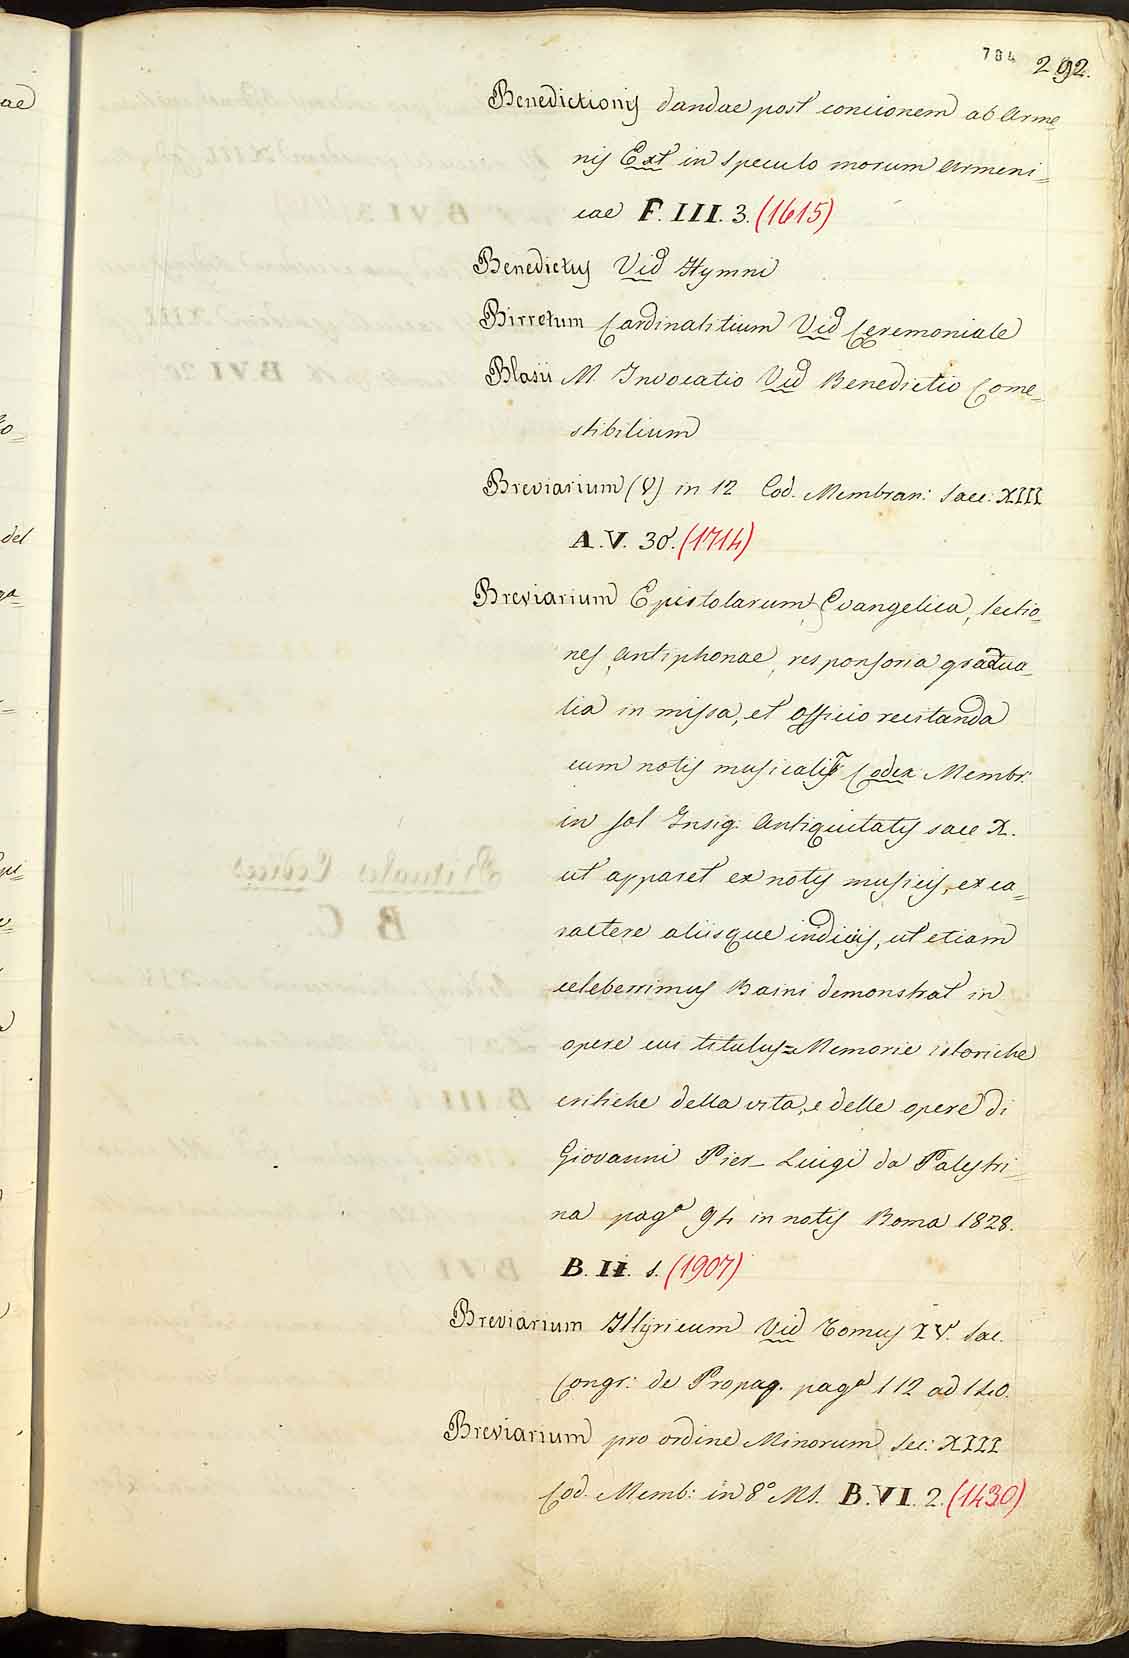 704 292.
Benedictionis dandae post concionem ab Arme=
nis Ext in speculo morum Armeni=
cae F. III. 3. (1615)
Benedictus Vid Hymni
Birretum Cardinalitium Vid Ceremoniale
Blasii M. Invocatio Vid Benedictio Come=
stibilium
Breviarium (V) in 12 Cod. Membran: saec: XIII
A. V. 30. (1714)
Breviarium Epistolarum, Evangelica, lectio=
nes, antiphonae, responsoria gradua=
lia in missa, et officio recitanda
cum notis musicalib Codex Membr:
in fol Insig. Antiquitatis saec X.
ut apparet ex notis musicis, ex ca=
ractere aliisque indiciis, ut etiam
celeberrimus Baini demonstrat in
opere cui titulus = Memorie istoriche
critiche della vita, e delle opere di
Giovanni Pier-Luigi da Palestri=
na pagª 94 in notis Roma 1828.
B. II. 1. (1907)
Breviarium Illyricum Vid Tomus IV. Sac.
Congr: de Propag. pagª 112 ad 140.
Breviarium pro ordine Minorum sec: XIII
Cod. Memb: in 8º MS. B. VI. 2. (1430)
ae
del
ga=